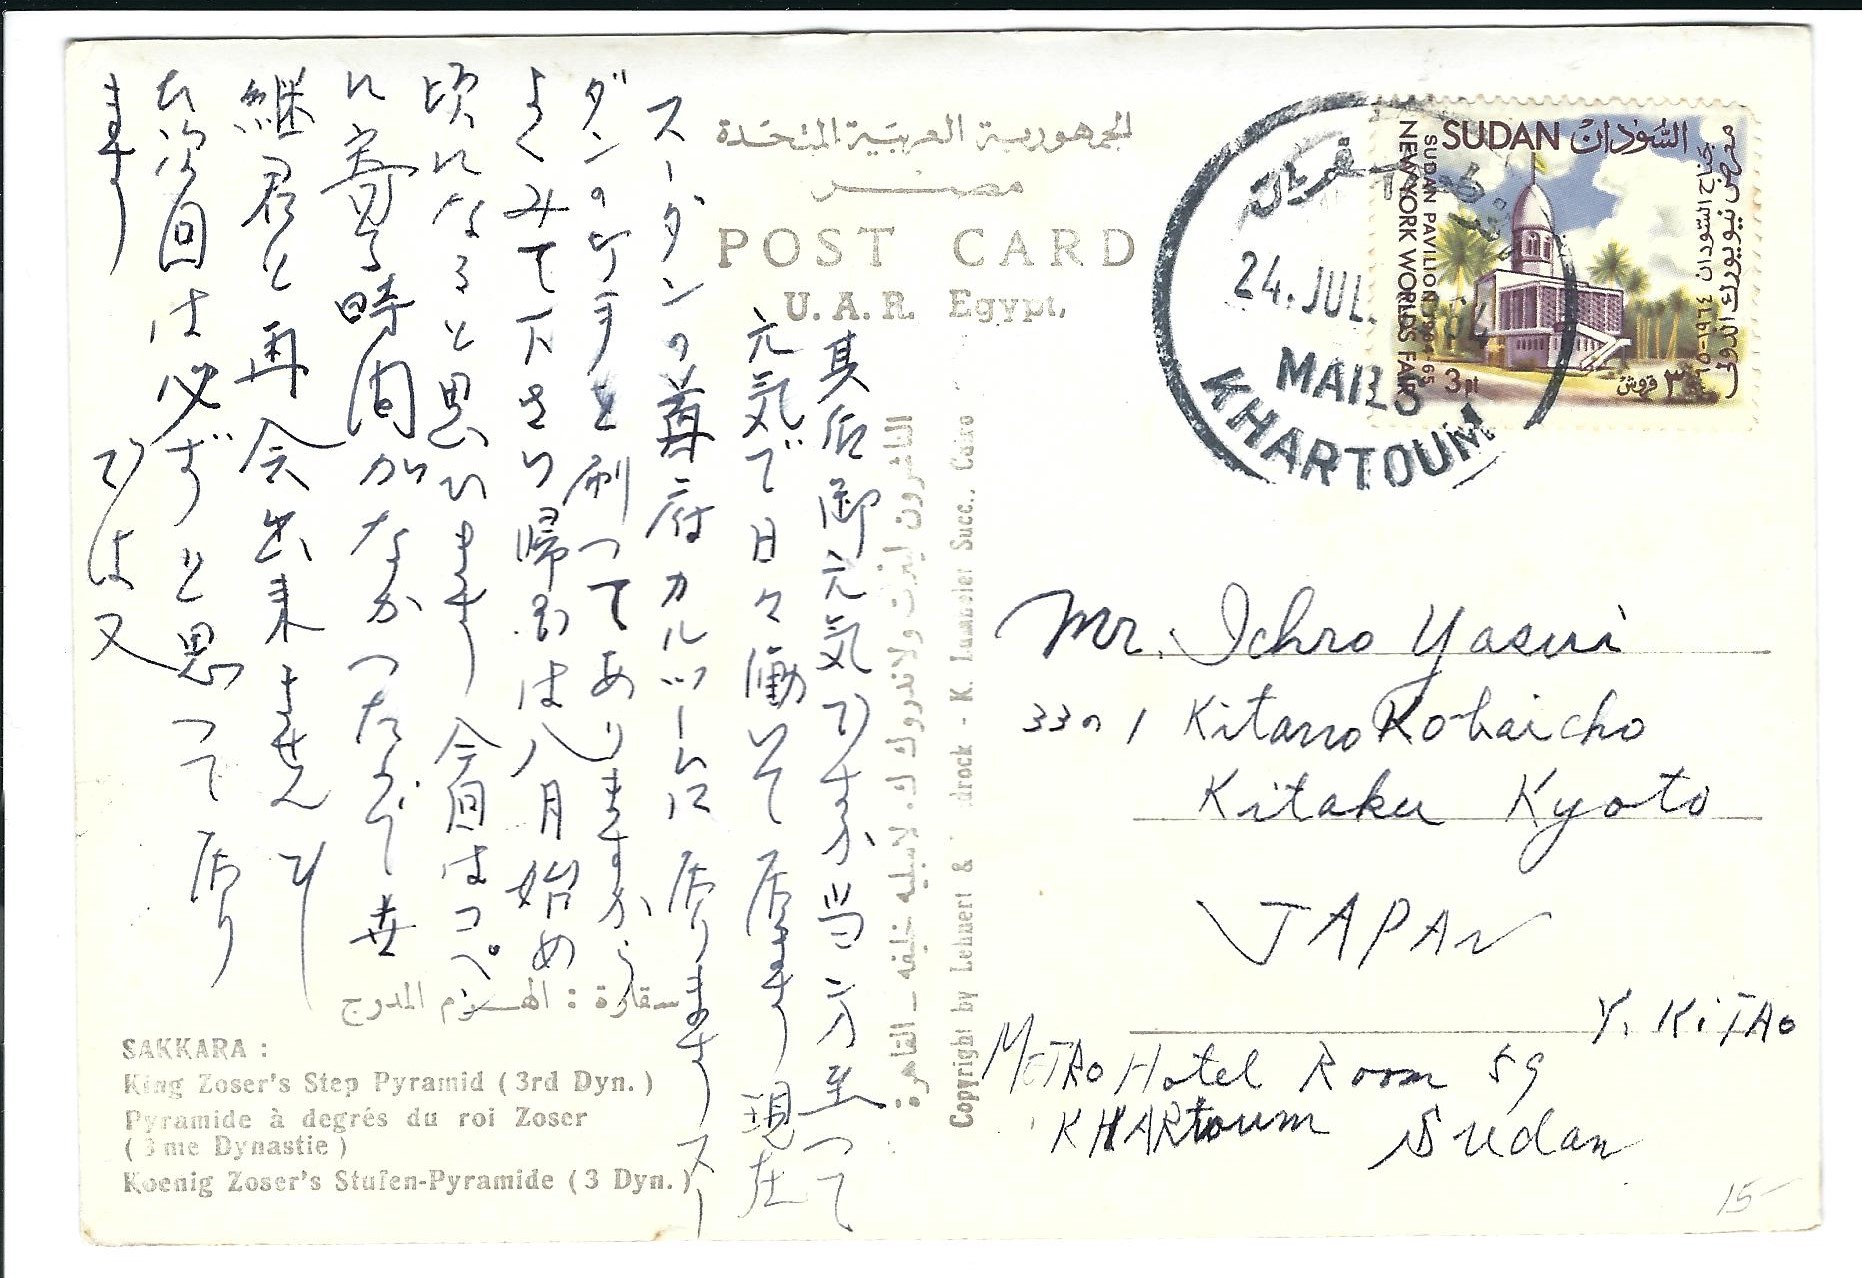 الجمهورية العربية المتحدة
مصر
POST CARD
U. A. R. Egypt.
其后御元気ですか 当方至って
元気で日々働いて居ます 現在
スーダンの首府カルツームに居ります スー
ダンの切手を刷つてありますから
よくみて下さい 帰るのは八月始め
頃になると思ひます 今回はコペ
に寄る時間がなかつたので 幸
継君と再会出来ませんでし
た 次回は必ずと思つて居り
ます では又
سقارة : الهرم المدرج
SAKKARA :
King Zoser's Step Pyramid ( 3rd Dyn. )
Pyramide à degrés du roi Zoser
( 3 me Dynastie )
Koenig Zoser's Stufen-Pyramide ( 3 Dyn. )
الناشرون لينرت ولاندروك ك. لامبليه خليفه - القاهرة
Copyright by Lehnert & drock - K. Lambelet Succ., Cairo
SUDAN السودان
SUDAN PAVILION 1964-65
NEW YORK WORLDS FAIR
معرض نيويورك الدولى
جناح السودان ١٩٦٤-٦٥
3 pt ٣ قروش
24. JUL. 64
MAILS
KHARTOUM
Mr. Ichro Yasui
33の1 Kitano Kobaicho
Kitaku Kyoto
JAPAN
Y. KiTAo
METRO Hotel Room 59
KHARtoum Sudan
15-